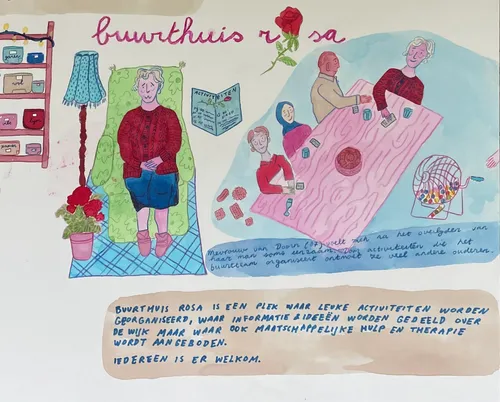 buurthuis rosa
ACTIVITEITEN
Mevrouw van Doorn (87) voelt zich na het overlijden van
haar man soms eenzaam. Door activiteiten die het
buurtteam organiseert ontmoet ze veel andere ouderen.
BUURTHUIS ROSA IS EEN PLEK WAAR LEUKE ACTIVITEITEN WORDEN
GEORGANISEERD, WAAR INFORMATIE & IDEEËN WORDEN GEDEELD OVER
DE WIJK MAAR WAAR OOK MAATSCHAPPELIJKE HULP EN THERAPIE
WORDT AANGEBODEN.
IEDEREEN IS ER WELKOM.